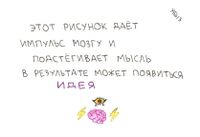 ЭТОТ РИСУНОК ДАЁТ
ИМПУЛЬС МОЗГУ И
ПОДСТЁГИВАЕТ МЫСЛЬ
В РЕЗУЛЬТАТЕ МОЖЕТ ПОЯВИТЬСЯ
ИДЕЯ